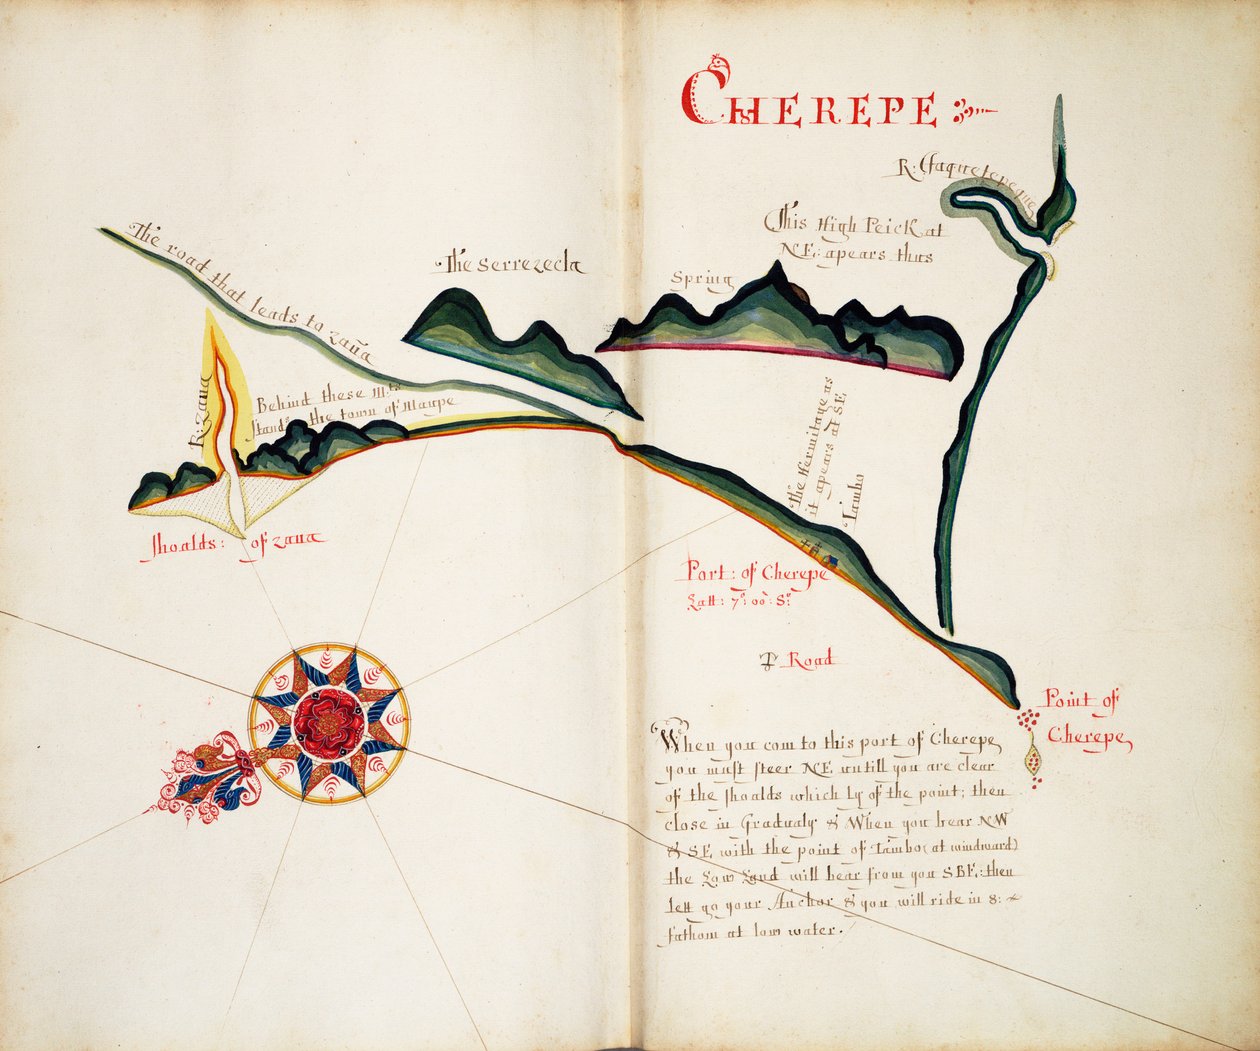 CHEREPE
R: Chaquetepeque
This High Peick at
NE: apears thus
Spring
The Serrezecla
The road that leads to zaña
R: zana
Behind these M:ts
stands the town of Maupe
The Hermitage as
it apears at SE
Tambo
Shoalds: of zana
Port: of Cherepe
Latt: 7°: 00: S°
Road
Point of
Cherepe
When you com to this port of Cherepe
you must steer NE untill you are clear
of the shoalds which ly of the point; then
close in Gradualy & When you bear NW
& SE with the point of Tambo (at windward)
the Low Land will bear from you SBE: then
lett go your Anchor & you will ride in 8:
fathom at low water.